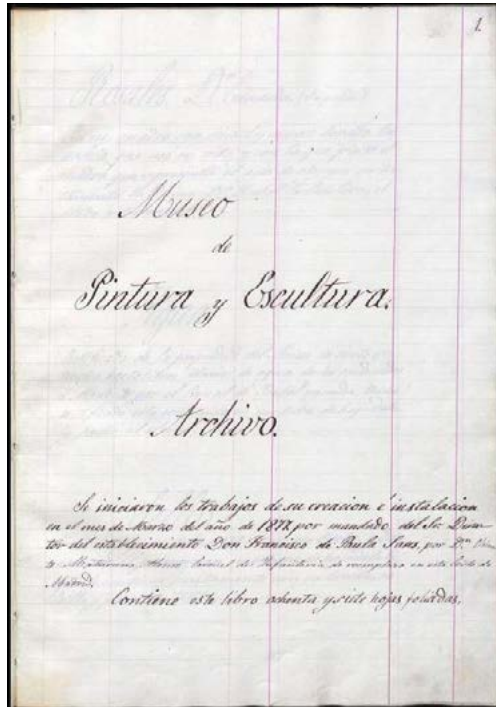 1.
Museo
de
Pintura y Escultura.
Archivo.
Se iniciaron los trabajos de su creacion é instalacion
en el mes de Marzo del año de 1877, por mandado del Sr. Direc-
tor del establecimiento Don Francisco de Paula Sans, por Dn.
de Infanteria de reemplazo en esta Corte de
Madrid.
Contiene este libro ochenta y siete hojas foliadas.